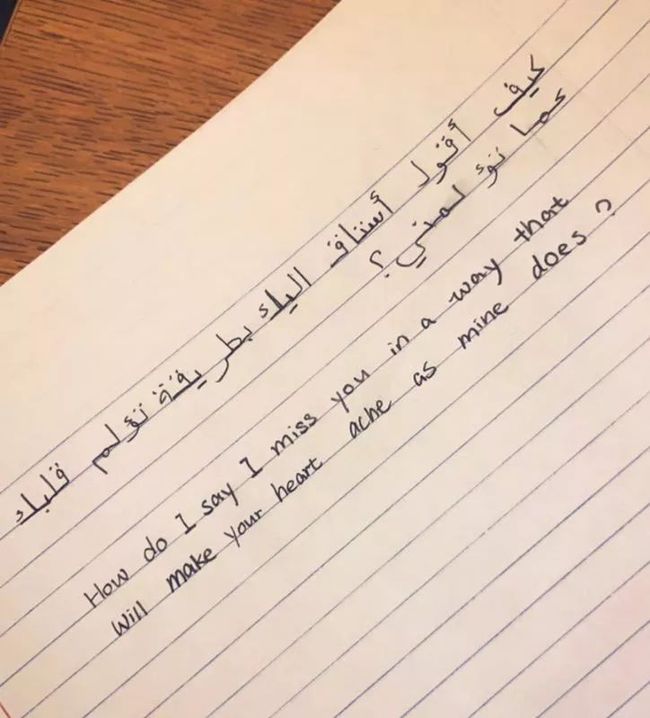 كيف أقول أشتاق اليك بطريقة تؤلم قلبك
كما تؤلمني؟
How do I say I miss you in a way that
will make your heart ache as mine does?